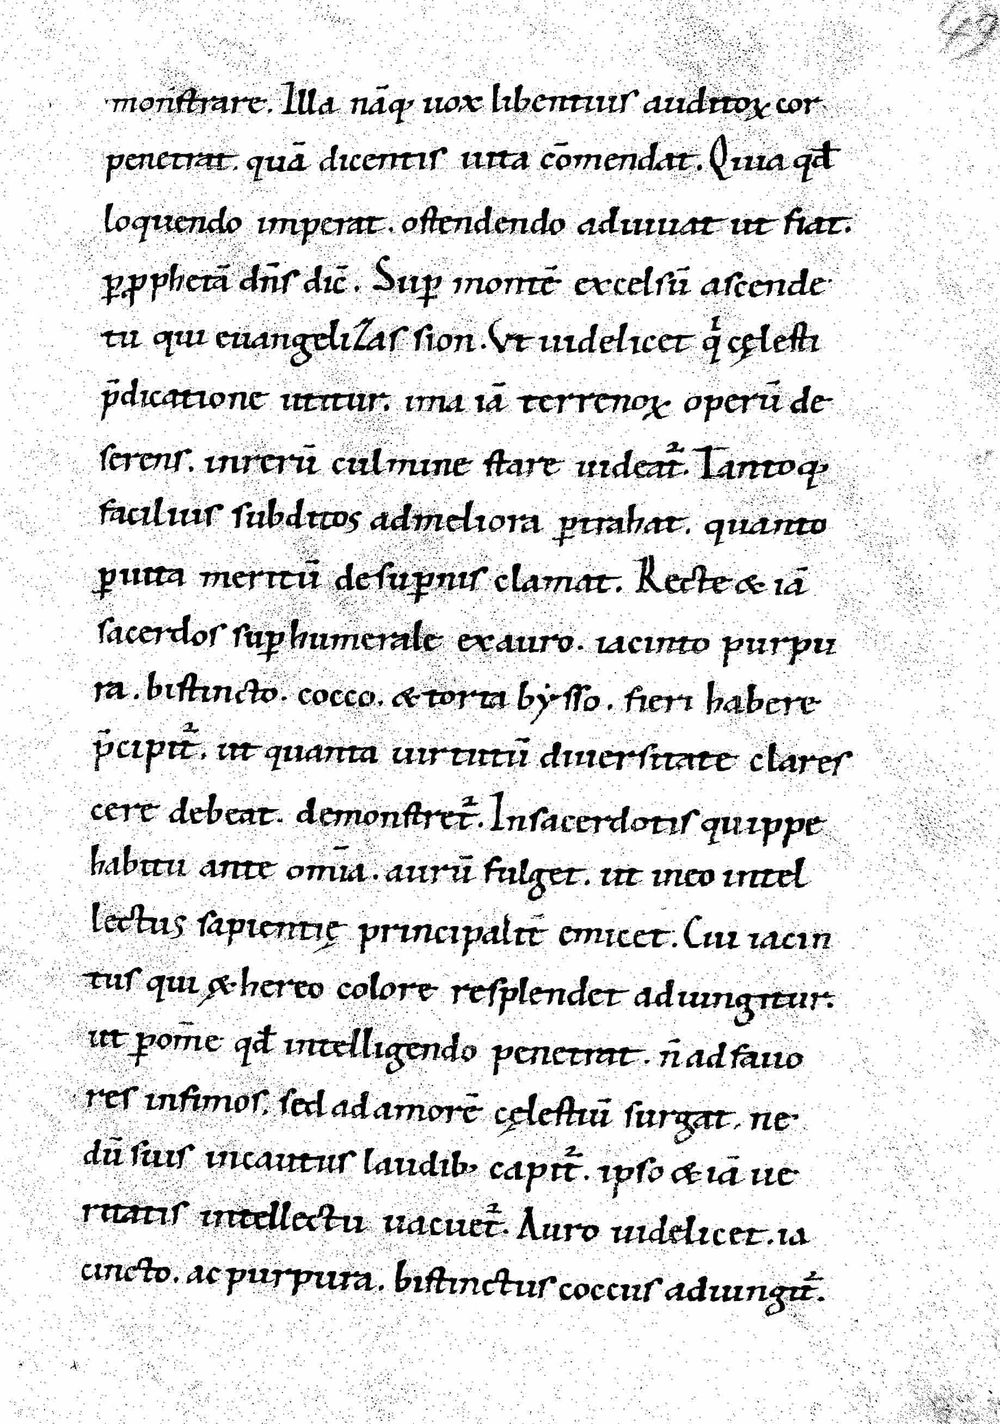 49
monstrare. Illa nāq; uox libentius auditoꝝ cor
penetrat. quā dicentis uita cōmendat. Quia qđ
loquendo imperat. ostendendo adiuuat ut fiat.
ꝑ ꝓphetā dn̄s dic̄. Suꝑ montē excelsū ascende
tu qui euangelizas sion. Vt uidelicet qͥ cęlesti
p̄dicatione utitur. ima iā terrenoꝝ operū de
serens. in rerū culmine stare uideat᷑. Tantoq;
facilius subditos ad meliora ꝑtrahat. quanto
ꝑ uitę meritū de suꝑnis clamat. Recte & iā
sacerdos suꝑhumerale ex auro. iacinto purpu
ra. bistincto. cocco. & torta bẏsso. fieri habere
p̄cipit᷑. ut quanta uirtutū diuersitate clares
cere debeat. demonstret᷑. In sacerdotis quippe
habitu ante om̄ia. aurū fulget. ut in eo intel
lectus sapientię principalit̄ emicet. Cui iacin
tus qui ę&hereo colore resplendet adiungitur.
ut ꝑ om̄e qđ intelligendo penetrat. n̄ ad fauo
res infimos. sed ad amorē cęlestiū surgat. ne
dū suis incautus laudib; capit᷑. ipso & iā ue
ritatis intellectu uacuet᷑. Auro uidelicet. ia
cincto. ac purpura. bistinctus coccus adiungit᷑.